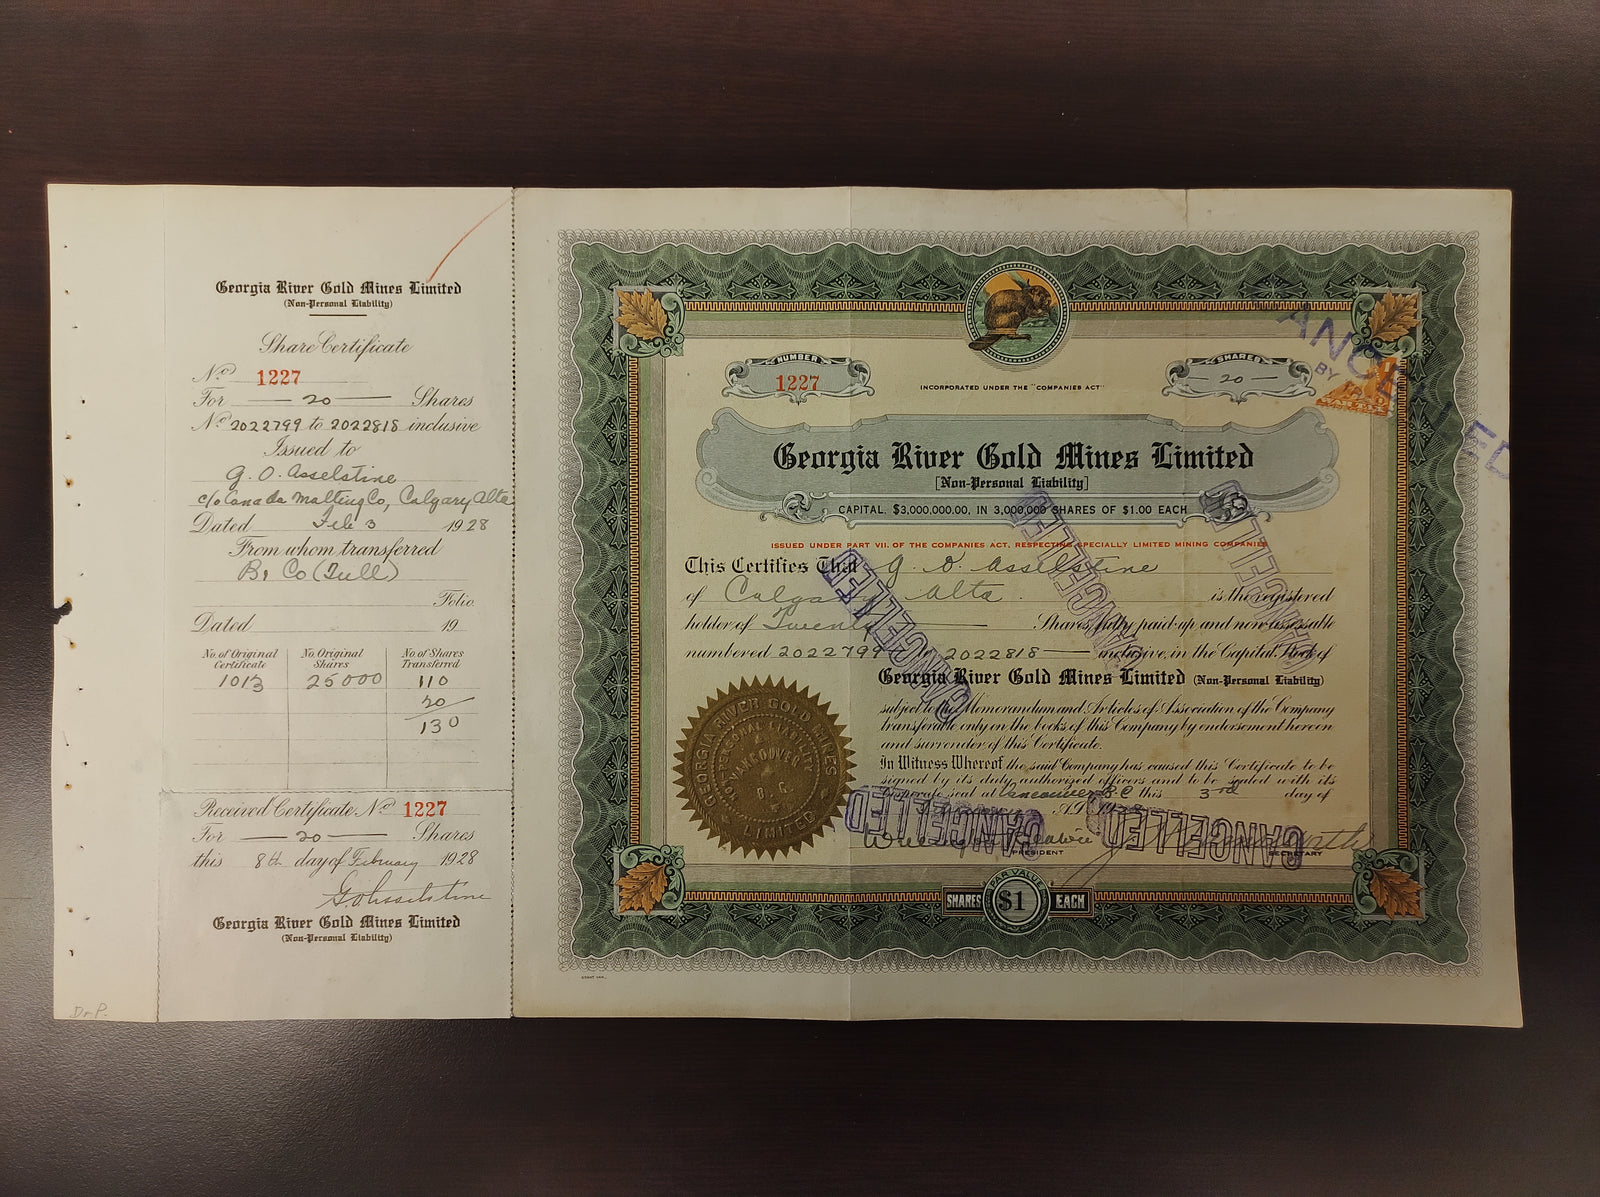 Georgia River Gold Mines Limited
(Non-Personal Liability)
Share Certificate
No. 1227
For — 20 — Shares
No. 2022799 to 2022818 inclusive
Issued to
G. O. Asselstine
c/o Canada Malting Co, Calgary Alta
Dated Feb 3 1928
From whom transferred
Folio
Dated 19
No. of Original Certificate No. Original Shares No. of Shares Transferred
1013 25000 110
20
130
Received Certificate No. 1227
For — 20 — Shares
this 8th day of February 1928
G. O. Asselstine
Georgia River Gold Mines Limited
(Non-Personal Liability)
Dr P.
NUMBER
1227
INCORPORATED UNDER THE "COMPANIES ACT"
SHARES
20 —
Georgia River Gold Mines Limited
[Non-Personal Liability]
CAPITAL, $3,000,000.00, IN 3,000,000 SHARES OF $1.00 EACH
ISSUED UNDER PART VII. OF THE COMPANIES ACT, RESPECTING SPECIALLY LIMITED MINING COMPANIES
This Certifies That G. O. Asselstine
of Calgary Alta. is the registered
holder of Twenty — Shares, fully paid-up and non-assessable
numbered 2022799 to 2022818 — inclusive, in the Capital Stock of
Georgia River Gold Mines Limited (Non-Personal Liability)
subject to the Memorandum and Articles of Association of the Company
transferable only on the books of this Company by endorsement hereon
and surrender of this Certificate.
In Witness Whereof the said Company has caused this Certificate to be
signed by its duly authorized officers and to be sealed with its
corporate seal at Vancouver B.C this 3rd day of
A.D. 19
PRESIDENT
SECRETARY
GEORGIA RIVER GOLD MINES
LIMITED
NON-PERSONAL LIABILITY
VANCOUVER
B.C.
SHARES PAR VALUE $1 EACH
CANCELLED
CANCELLED
CANCELLED
CANCELLED
CANCELLED
CANCELLED
CANCELLED
BY